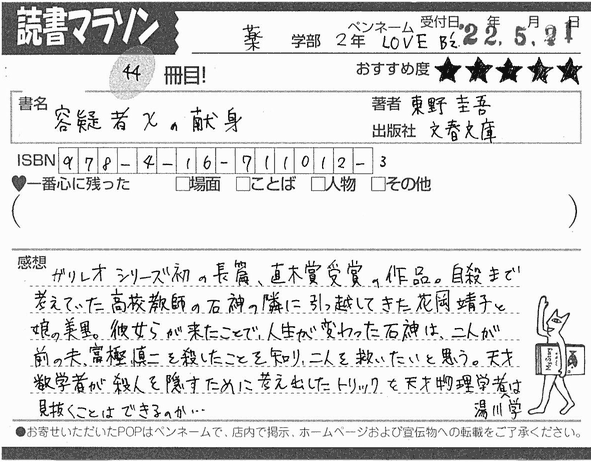 読書マラソン
薬 学部 2年 ペンネーム LOVE B'z 受付日 22年 5月 21日
44 冊目! おすすめ度 ★★★★★
書名 容疑者Xの献身 著者 東野圭吾
出版社 文春文庫
ISBN 978-4-16-711012-3
♥一番心に残った □場面 □ことば □人物 □その他
( )
感想 ガリレオシリーズ初の長篇、直木賞受賞の作品。自殺まで
考えていた高校教師の石神の隣に引っ越してきた花岡靖子と
娘の美里。彼女らが来たことで、人生が変わった石神は、二人が
前の夫、富樫慎二を殺したことを知り、二人を救いたいと思う。天才
数学者が殺人を隠すために考え出したトリックを天才物理学者は
湯川学
見抜くことはできるのか…
●お寄せいただいたPOPはペンネームで、店内で掲示、ホームページおよび宣伝物への転載をご了承ください。